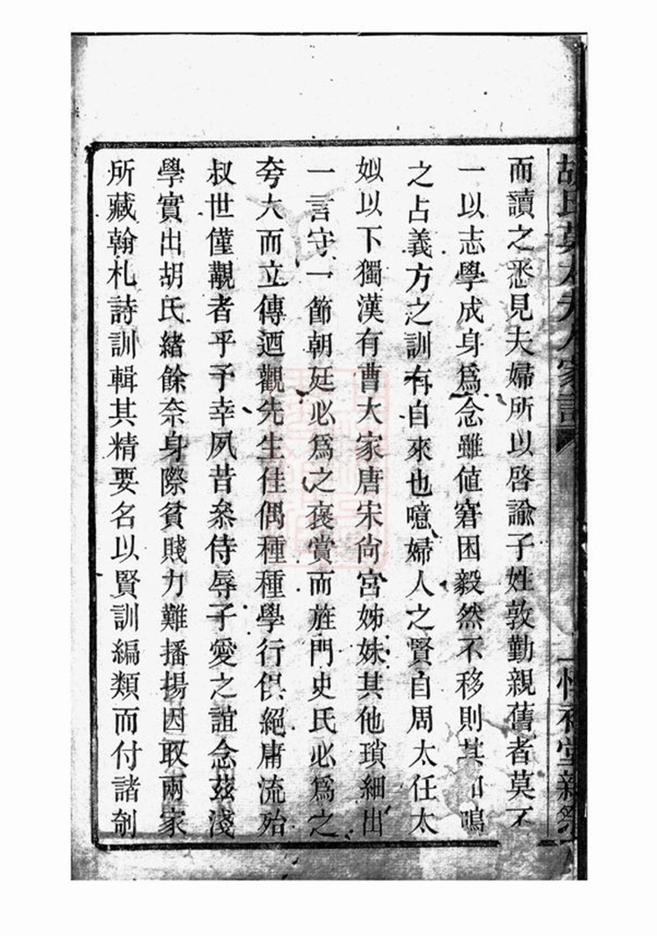 而讀之悉見夫婦所以啓諭子姓敦勤親舊者莫不
一以志學成身爲念雖値窘困毅然不移則其和鳴
之占義方之訓有自來也噫婦人之賢自周太任太
姒以下獨漢有曹大家唐宋尚宮姊妹其他瑣細出
一言守一節朝廷必爲之褒賞而旌門史氏必爲之
夸大而立傳廼觀先生佳偶種種學行俱絕庸流殆
叔世僅覯者乎予幸夙昔叅侍辱子愛之誼念茲淺
學實出胡氏緒餘奈身際貧賤力難播揚因取兩家
所藏翰札詩訓輯其精要名以賢訓編類而付諸剞